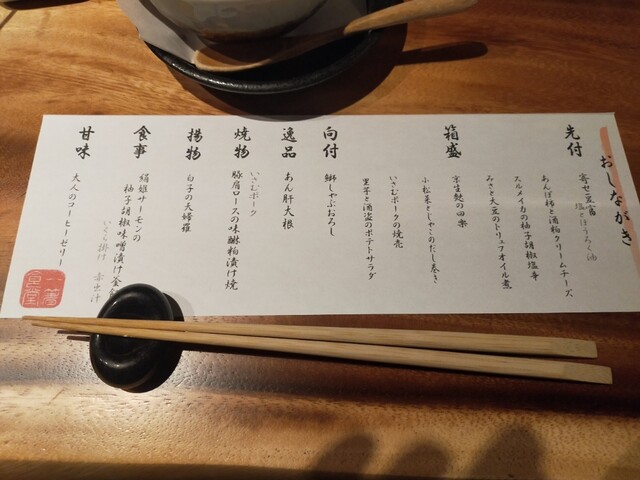 おしながき
先付
寄せ豆富
塩とほうろく油
箱盛
あんぽ柿と酒粕クリームチーズ
スルメイカの柚子胡椒塩辛
みさと大豆のトリュフオイル煮
京生麩の田楽
小松菜とじゃこのだし巻き
いさむポークの焼売
里芋と酒盗のポテトサラダ
向付
鰤しゃぶおろし
逸品
あん肝大根
焼物
いさむポーク
豚肩ロースの味醂粕漬け焼
揚物
白子の天婦羅
食事
絹姫サーモンの
柚子胡椒味噌漬け釜
いくら掛け 赤出汁
甘味
大人のコーヒーゼリー